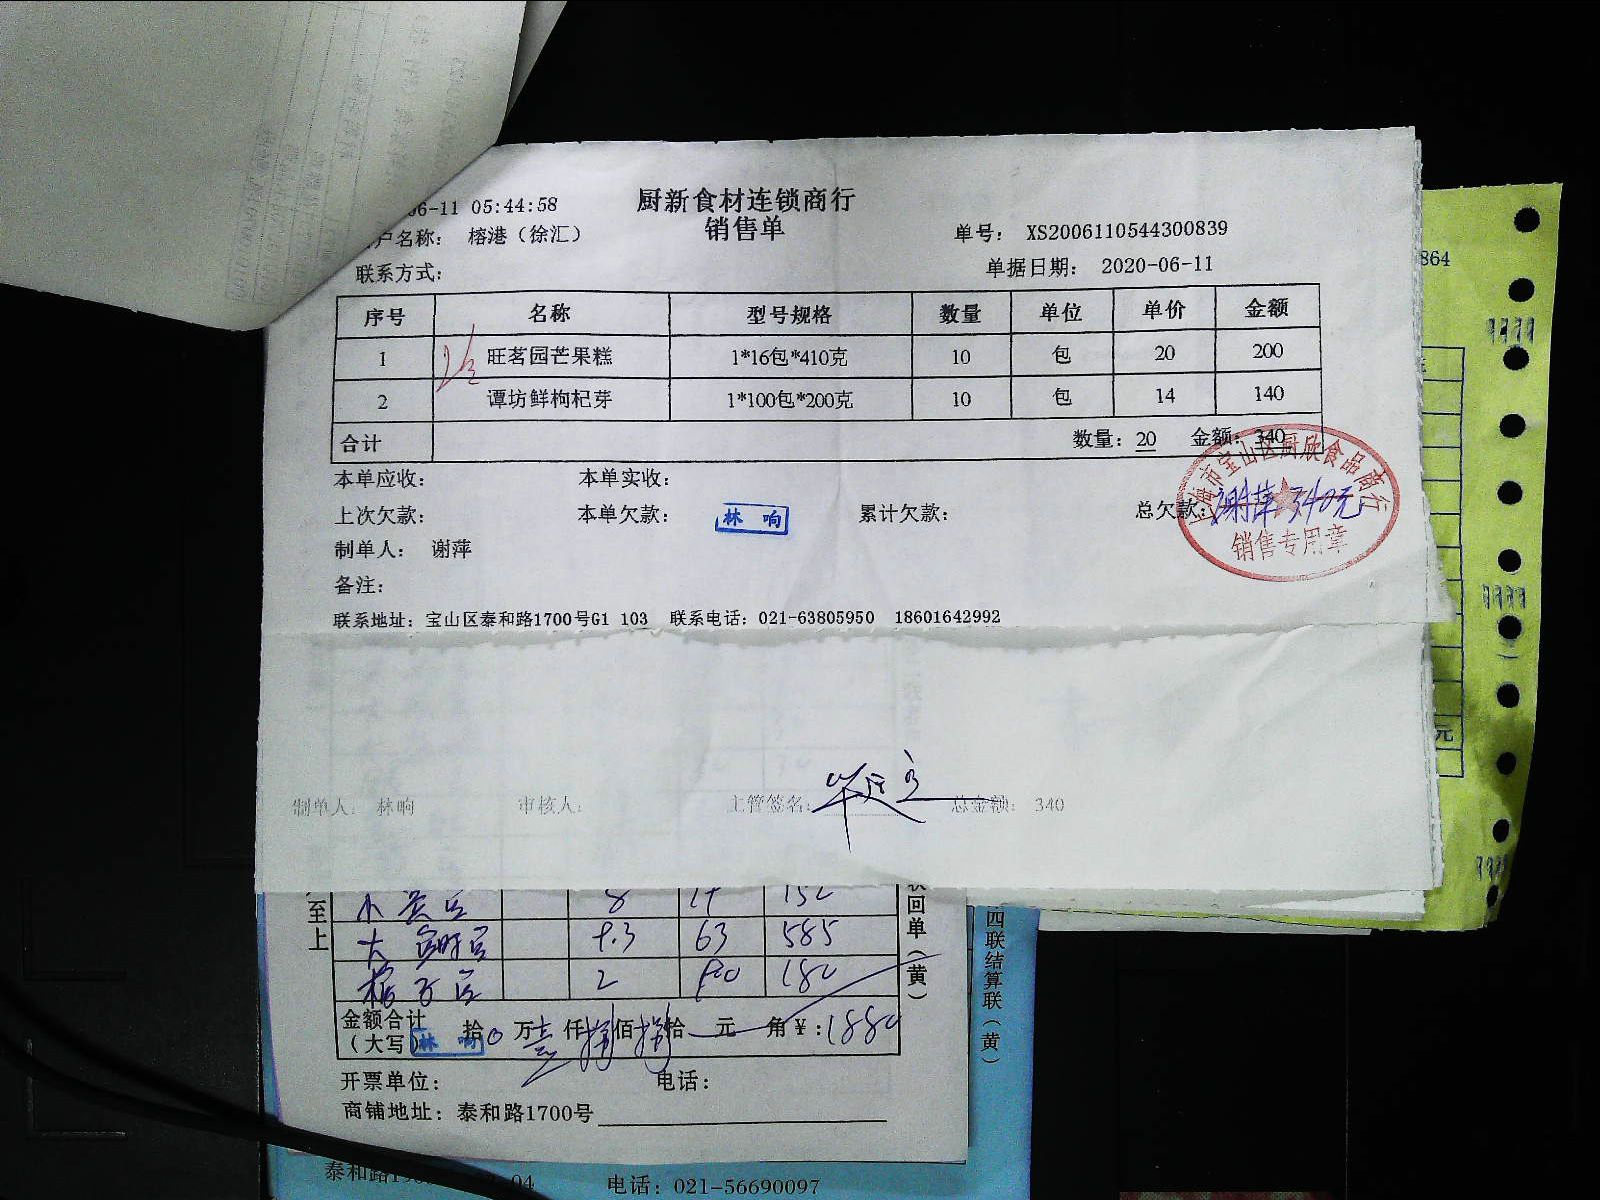 06-11 05:44:58
厨新食材连锁商行
销售单
户名称： 榕港（徐汇）
单号： XS2006110544300839
联系方式：
单据日期： 2020-06-11
序号 名称 型号规格 数量 单位 单价 金额
1 旺茗园芒果糕 1*16包*410克 10 包 20 200
2 谭坊鲜枸杞芽 1*100包*200克 10 包 14 140
合计 数量：20 金额：340
本单应收： 本单实收：
上次欠款： 本单欠款： 林响 累计欠款： 总欠款： 谢萍 340元
上海市宝山区厨欣食品商行
销售专用章
制单人： 谢萍
备注：
联系地址：宝山区泰和路1700号G1 103 联系电话：021-63805950 18601642992
864
元
制单人： 林响 审核人： 主管签名： 总金额： 340
63 585
2 180
至上
联回单（黄）
四联结算联（黄）
金额合计（大写） 林响 拾0万壹仟捌佰捌拾元 角 ¥：1880
开票单位： 电话：
商铺地址：泰和路1700号
泰和路 04
电话：021-56690097